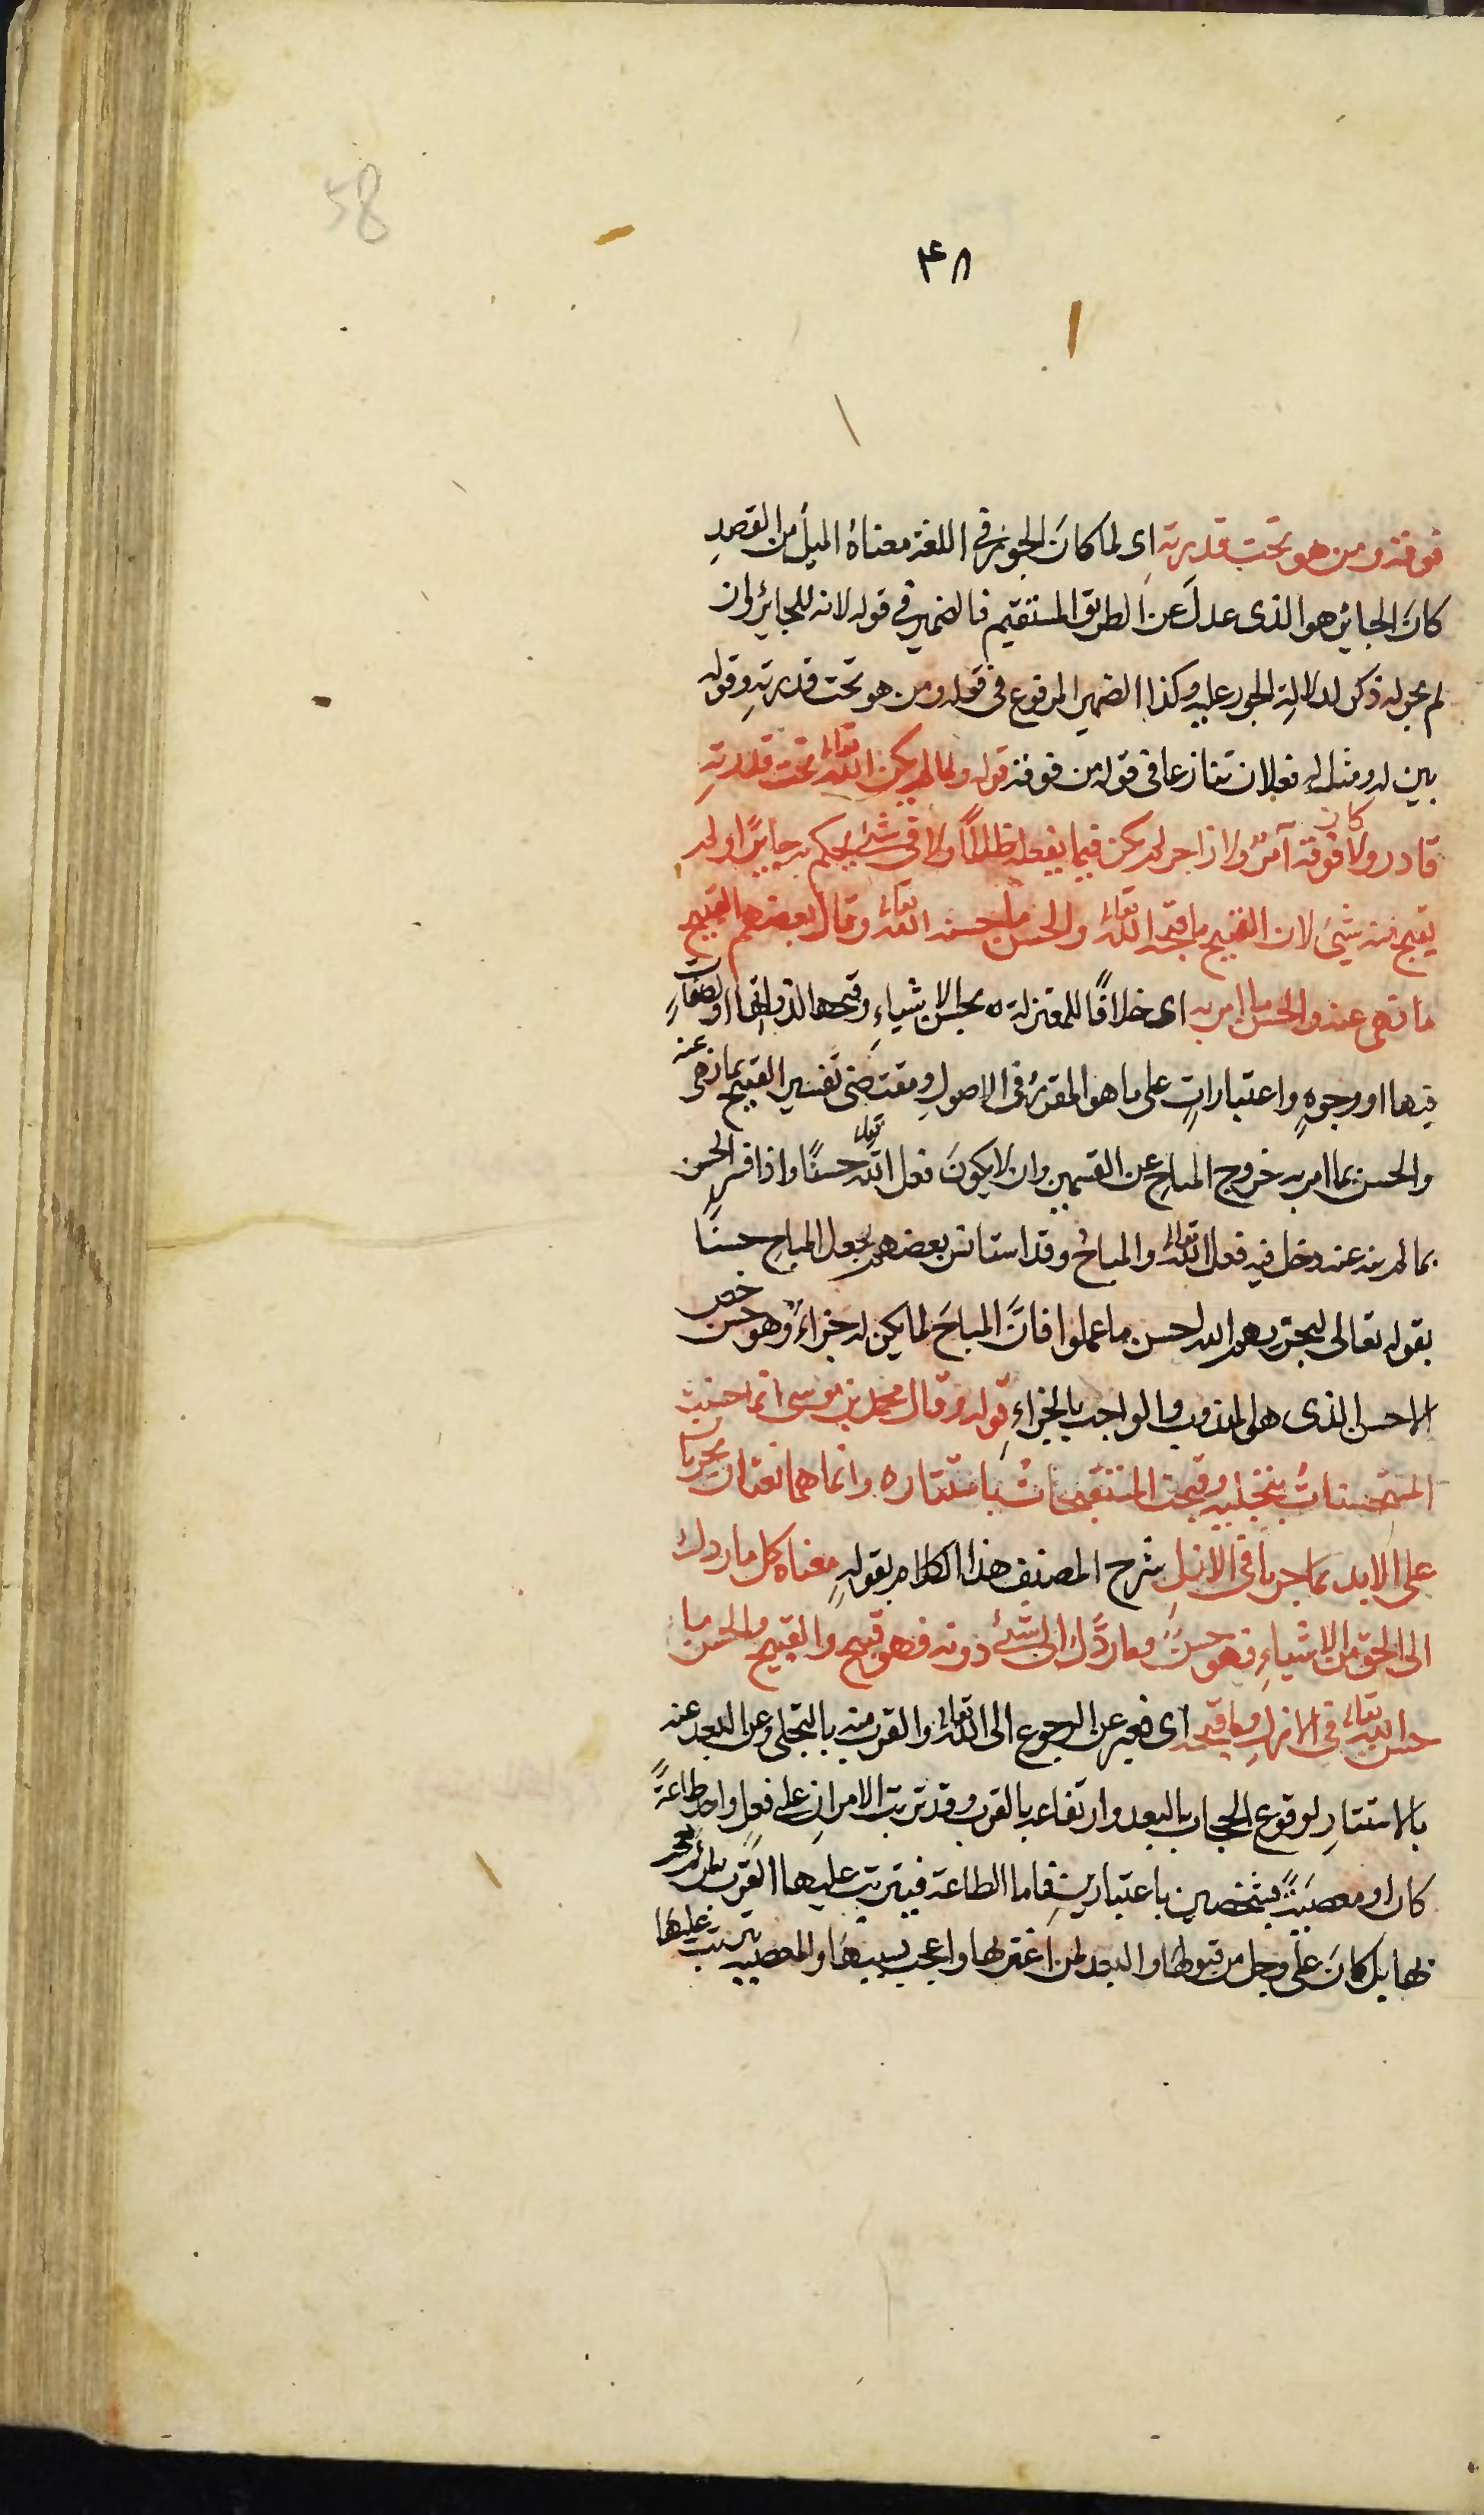 58
۴۸
فوقه ومن هو تحت قدرته اى لما كانَ الجور فى اللغة معناهُ الميلُ من القصدِ
كانَ الجائر هو الذى عدلَ عن الطريق المستقيم فالضمير فى قوله لانه للجائر وان
لم يجر له ذكر لدلالةِ الجور عليه وكذا الضمير المرفوع فى قوله ومن هو تحت قدرتهِ وقوله
بين له ومثل له فعلان تنازعا فى قوله من فوقه قوله ولما لم يكن الله تعالى تحت قدرتهِ
قادر ولا كان فوقه آمرٌ ولا زاجر لم يكن فيما يفعله ظالمًا ولا فى شئ يحكم به جايرًا ولم
يقبح منه شيئ لان القبيح ما قبحه الله تعالى والحسن ما حسنه الله تعالى وقال بعضهم القبيح
ما نهى عنه والحسن ما امر به اى خلافًا للمعتزلة ه بحسن الاشياءِ وقبحها لذواتها او لصفاتٍ
فيها او وجوهٍ واعتباراتٍ على ما هو المقررُ فى الاصولِ ومقتضى تفسير القبيح بما نهى عنه
والحسن بما امر به خروج المباحِ عن القسمين وان لا يكونَ فعل الله تعالى حسنًا واذا فسر الحسن
بما لم ينه عنه دخل فيه فعل الله تعالى والمباحُ وقد استانس بعضهم لجعل المباحِ حسنًا
بقوله تعالى ليجزيهم الله احسن ما عملوا فانَّ المباحَ لم يكن له جزاءٌ وهو حسن خص
الاحسن الذى هو المندوب والواجب بالجزاءِ قوله وقال محمد بن موسى انما حسنت
المستحسناتُ بتجليه وقبحت المستقبحاتُ باستتاره وانما هما نعتان يجريان
على الابد بما جريا فى الازلِ شرح المصنف هذا الكلام بقولهِ معناه كل ما ردك
الى الحق من الاشياءِ فهو حسنٌ وما ردَّك الى شئ دونه فهو قبيح والقبيح والحسن ما
حسن الله تعالى فى الازلِ وما قبحه اى فعبر عن الرجوع الى الله تعالى والقرب منه بالتجلى وعن البعد عنه
بالاستتارِ لوقوع الحجاب بالبعد وارتفاعه بالقرب وقد ترتب الامرانِ على فعلٍ واحد طاعةً
كان او معصيةً لشخصين باعتبارين فاما الطاعة فيترتب عليها القرب لمن لم
بها بل كانَ على وجل من قبولها والبعد لمن اغتر بها واعجب بسببها والمعصية يترتب عليها